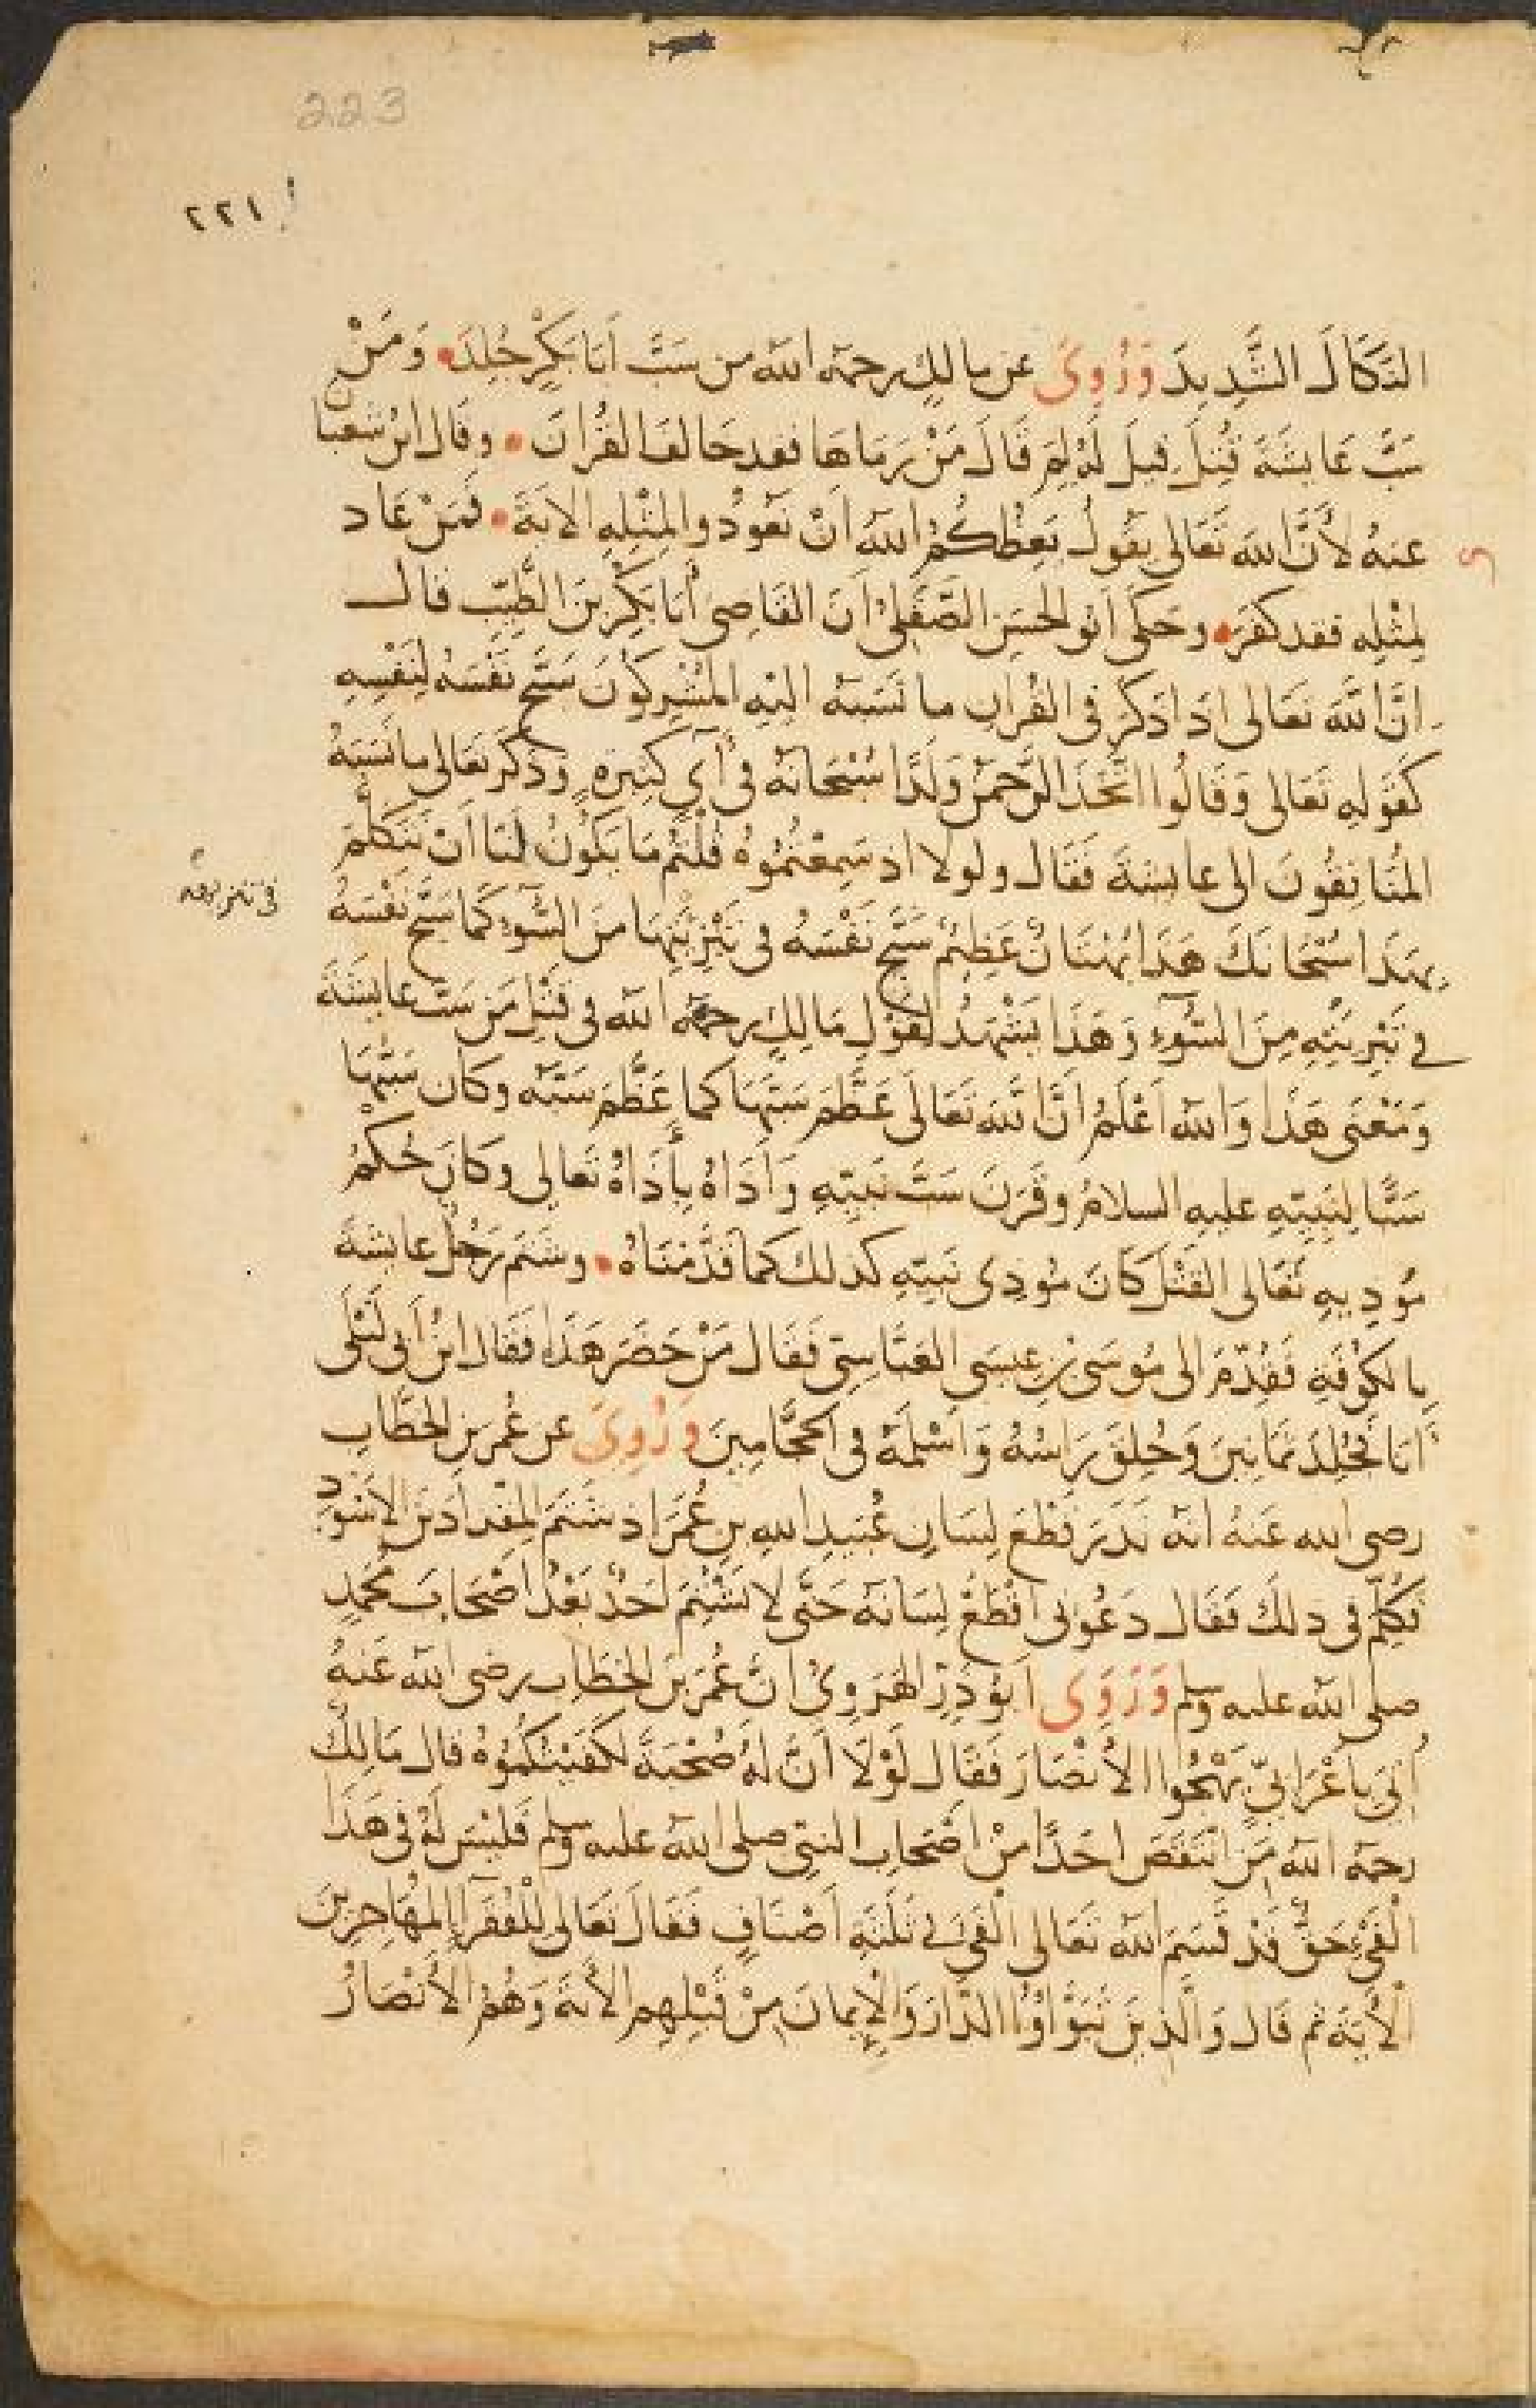 223
٢٢١
النَّكَالَ الشَّدِيدَ وَرُوِىَ عن مالكٍ رحمه الله من سَبَّ أَبَا بَكْرٍ جُلِدَ • وَمَنْ
سَبَّ عَايشَةَ قُتِلَ قيلَ لَهُ لِمَ قَالَ مَنْ رَمَاهَا فقد خالف القُرانَ • وقال ابنُ شَعْبَان
عنهُ لأنَّ الله تَعَالى يقُولُ يَعِظُكُمُ اللهُ أنْ تَعُودُوا لمِثْلِهِ الايَةَ • فَمَنْ عَاد
لمِثْلِهِ فقد كفَرَ • وحَكَى أبو الحسَنِ الصَّقَلِىُّ أنَ القَاضِىَ أبَا بَكْرِ بنَ الطَّيِّبِ قال
انَّ اللهَ تعَالى اذا ذكَرَ فى القُرانِ ما نَسَبَهُ اليْهِ المُشْرِكُونَ سَبَّحَ نَفْسَهُ لِنَفْسِهِ
كَقَوْلِهِ تَعَالى وَقَالُوا اتَّخَذَ الرَّحمنُ وَلَدًا سُبْحَانَهُ فى آىٍ كَثِيرَةٍ وَذَكَرَ تعَالى ما نسَبَهُ
المُنَافِقُونَ الى عايشةَ فَقَال ولولا اذ سَمِعْتُمُوهُ قُلْتُمْ مَا يَكُونُ لَنَا أنْ نَتَكَلَّمَ
بهَذَا سُبْحَانَكَ هَذَا بُهْتَانٌ عَظِيْمٌ سَبَّحَ نَفْسَهُ فى تَبْرِئَتِهَا مِنَ السُّوءِ كَمَا سَبَّحَ نَفْسَهُ
فى تَبْرِئَتِهِ مِنَ السُّوءِ وَهَذَا يَشْهَدُ لقَوْلِ مَالِكٍ رحمَهُ الله فى قَتْلِ مَن سَبَّ عايشَةَ
وَمَعْنى هَذَا وَاللهُ أعْلَمُ أنَّ اللهَ تَعَالَى عَظَّمَ سَبَّهَا كما عَظَّمَ سَبَّه وكان سَبُّهَا
سَبًّا لِنَبِيِّهِ عليهِ السلامُ وقَرَنَ سَبَّ نَبِيِّهِ وَأَذَاهُ بأَذَاهُ تَعالى وكانَ حُكْمُ
مُوذِيهِ تَعَالى القَتْلَ كَانَ مُوذِى نَبِيِّهِ كذلك كما قَدَّمْنَاهُ • وشَتَم رَجُلٌ عايشَةَ
بِالكُوْفَةِ فَقُدِّمَ الى مُوسَى بْنِ عِيسَى العَبَّاسِيِّ فَقَال مَنْ حَضَرَ هَذَا فَقَال ابنُ أَبى لَيْلَى
أنَا فَجُلِدَ ثمَانِينَ وَحُلِقَ رَاسُهُ وَأسْلَمَهُ فى الحجَّامِينَ وَرُوِىَ عن عُمَرَ بن الخَطَّابِ
رضى الله عَنهُ انه نَذَرَ قَطْعَ لِسَانِ عُبَيدِ اللهِ بنِ عُمَرَ اذ شَتَمَ المِقدادَ بنَ الأسْوَدِ
فكُلِّمَ فى ذلكَ فَقَال دَعُونى أقْطَعْ لِسَانَهُ حَتَّى لا يَشْتِمَ أحَدٌ بَعْدُ أصْحَابَ مُحَمَّدٍ
صلى الله عليه وسلم وَرَوَى أَبُو ذَرٍّ الهَرَوِىُّ انَّ عُمَرَ بنَ الخطَّابِ رضى الله عَنهُ
أُتِىَ بأعْرَابىٍّ يَهْجُوا الأنْصَارَ فَقَال لَوْلَا أنَّ لَهُ صُحْبَةً لكَفَيْتُكُمُوهُ قال مَالِكٌ
رحمَهُ اللهُ مَنِ انتَقَصَ احَدًا مِنْ اصْحَابِ النبِيّ صلى الله عليه وسلم فَليْسَ لَهُ فى هَذَا
الْفَىْءِ حَقٌّ قَدْ قَسَمَ اللهُ تَعَالى الْفَىَ فى ثَلَثَةِ أصْنَافٍ فَقَالَ تَعَالى لِلْفُقَرَآءِ المُهَاجِرِينَ
الْآيَةَ ثم قَال وَالَّذِينَ تَبَوَّاوُا الدَّارَ وَالْإيمانَ مِنْ قَبْلِهِم الآيَةَ وَهُمُ الأَنْصَارُ